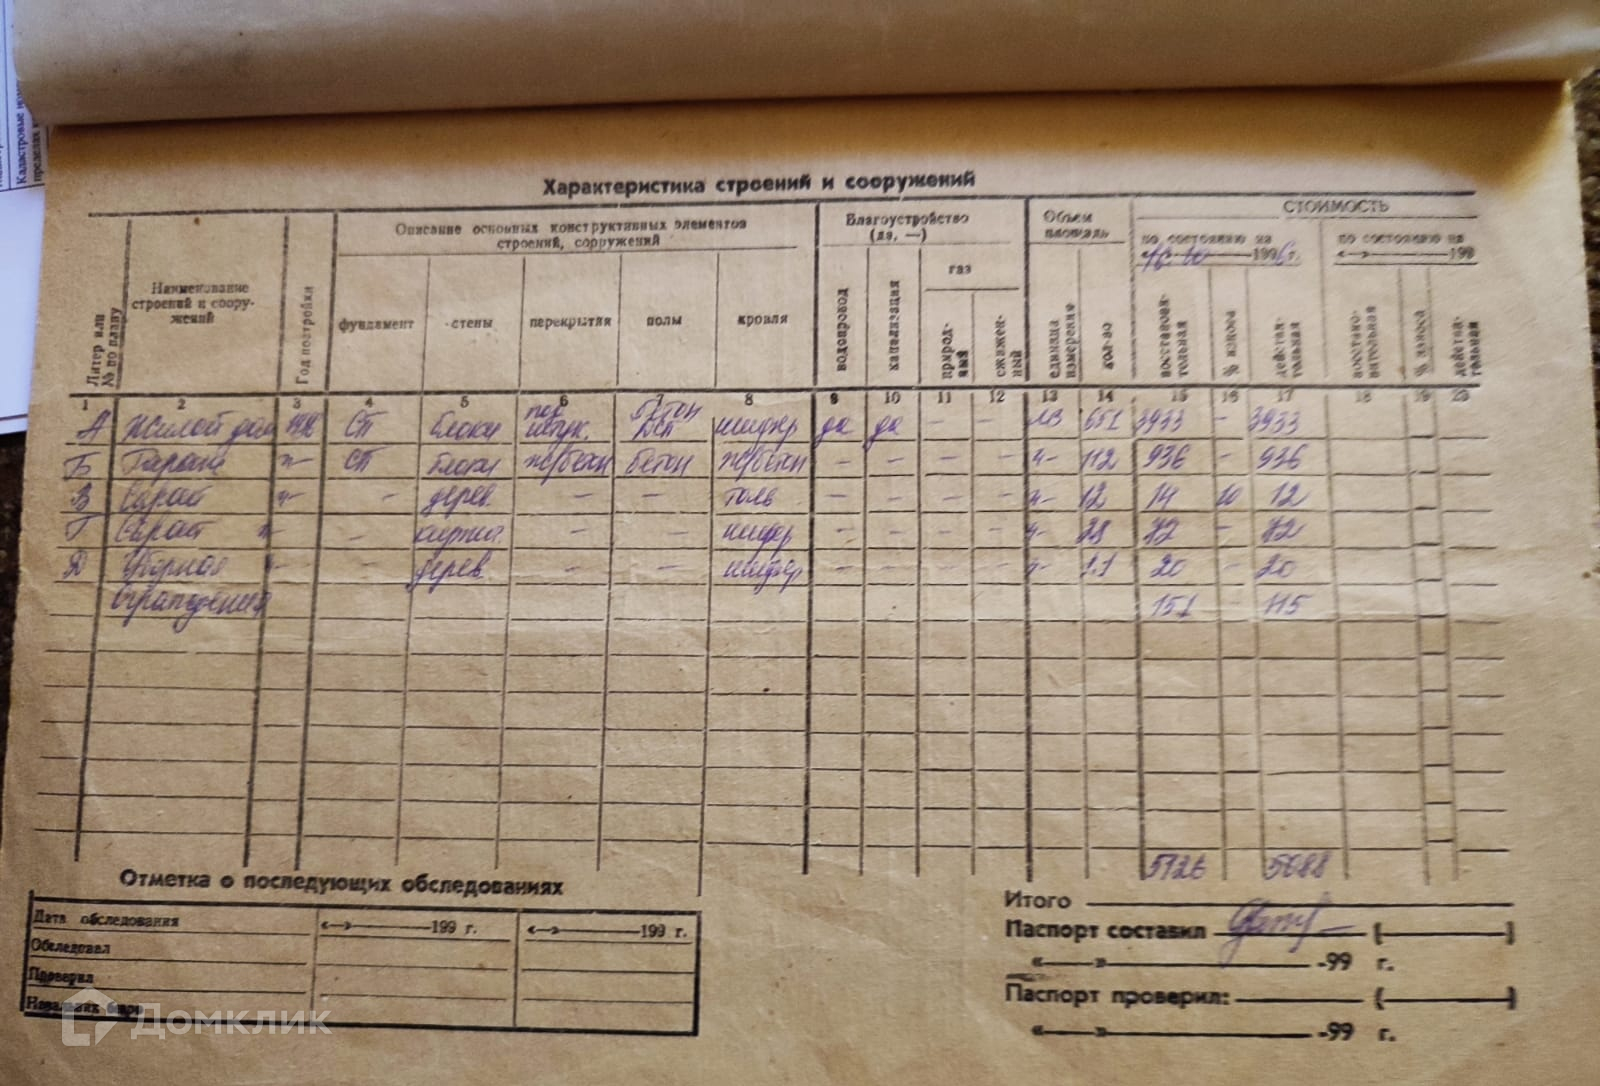 Кадастровые номе
пределах к
Характеристика строений и сооружений
Литер или № по плану
Наименование строений и сооружений
Год постройки
Описание основных конструктивных элементов
строений, сооружений
фундамент
стены
перекрытия
полы
кровля
Благоустройство
(да, —)
водопровод
канализация
газ
природный
сжиженный
Объем
площадь
единица измерения
кол-во
СТОИМОСТЬ
по состоянию на
1996 г.
восстановительная
% износа
действительная
по состоянию на
«—» 199
восстановительная
% износа
действительная
1 2 3 4 5 6 7 8 9 10 11 12 13 14 15 16 17 18 19 20
А Жилой дом СП блоки бетон шифер да да 651 3933 – 3933
Б Гараж –"– СП блоки ж/бетон бетон ж/бетон – – – – –"– 112 936 – 936
В Сарай –"– – дерев. – – толь – – – – –"– 12 14 10 12
Г Сарай –"– – – – шифер – – – – –"– 28 72 – 72
Д Уборная –"– дерев. – – шифер – – – – –"– 20 – 20
ограждения 151 – 115
5126 5088
Отметка о последующих обследованиях
Дата обследования «—» 199 г. «—» 199 г.
Обследовал
Проверил
Начальник бюро
Итого
Паспорт составил ( )
«—» -99 г.
Паспорт проверил: ( )
«—» -99 г.
Домклик